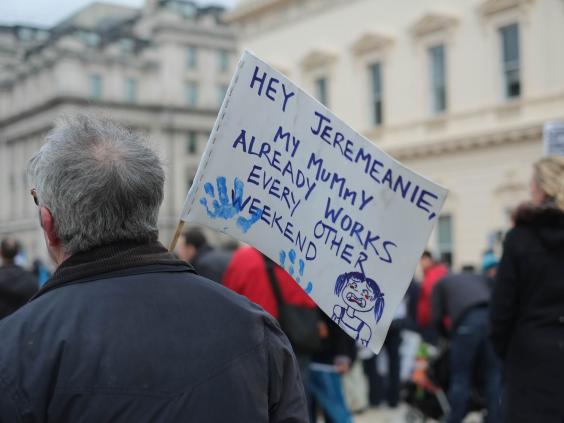 HEY JEREMEANIE,
MY MUMMY
ALREADY WORKS
EVERY OTHER
WEEKEND